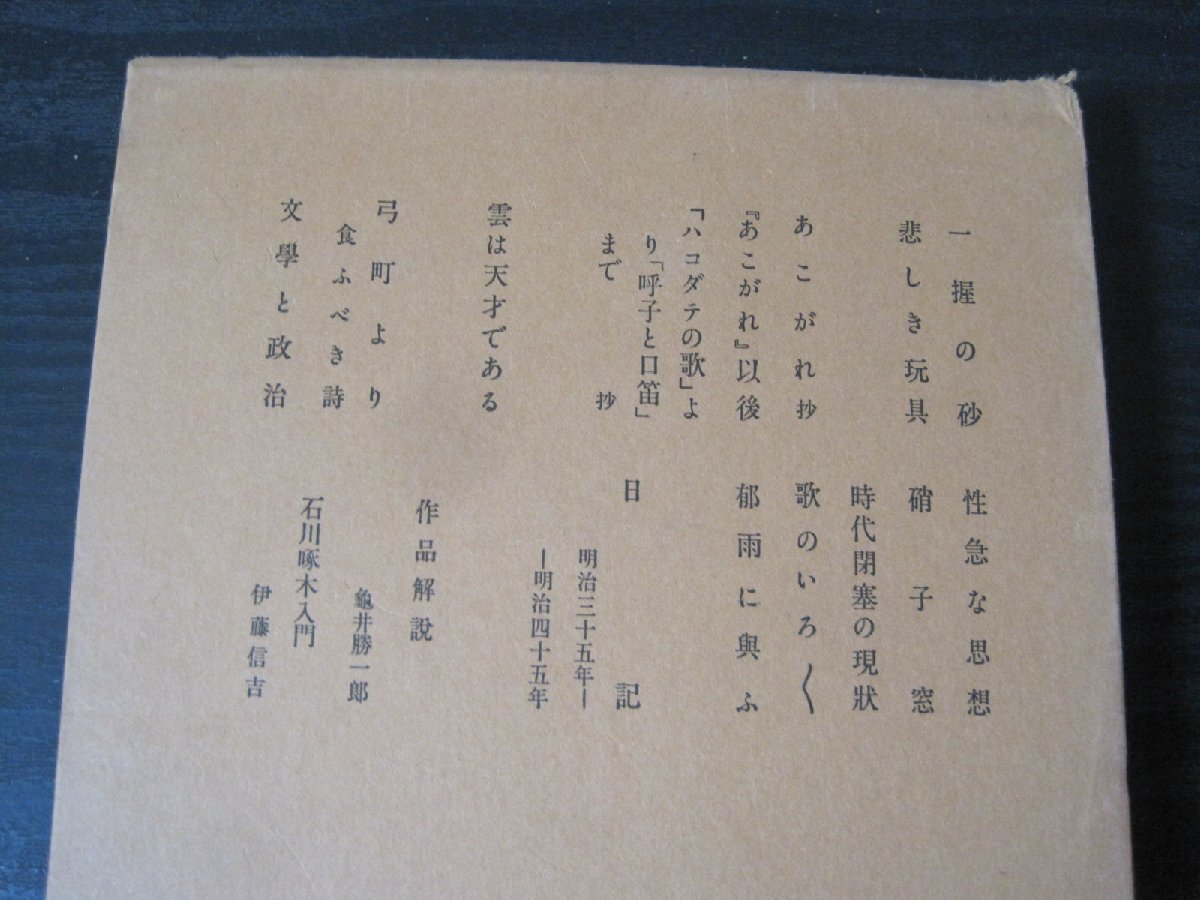 一握の砂
悲しき玩具
あこがれ抄
『あこがれ』以後
「ハコダテの歌」よ
り「呼子と口笛」
まで 抄
雲は天才である
弓町より
食ふべき詩
文學と政治
性急な思想
硝子窓
時代閉塞の現狀
歌のいろ〱
郁雨に與ふ
日記
明治三十五年―
―明治四十五年
作品解說
龜井勝一郎
石川啄木入門
伊藤信吉